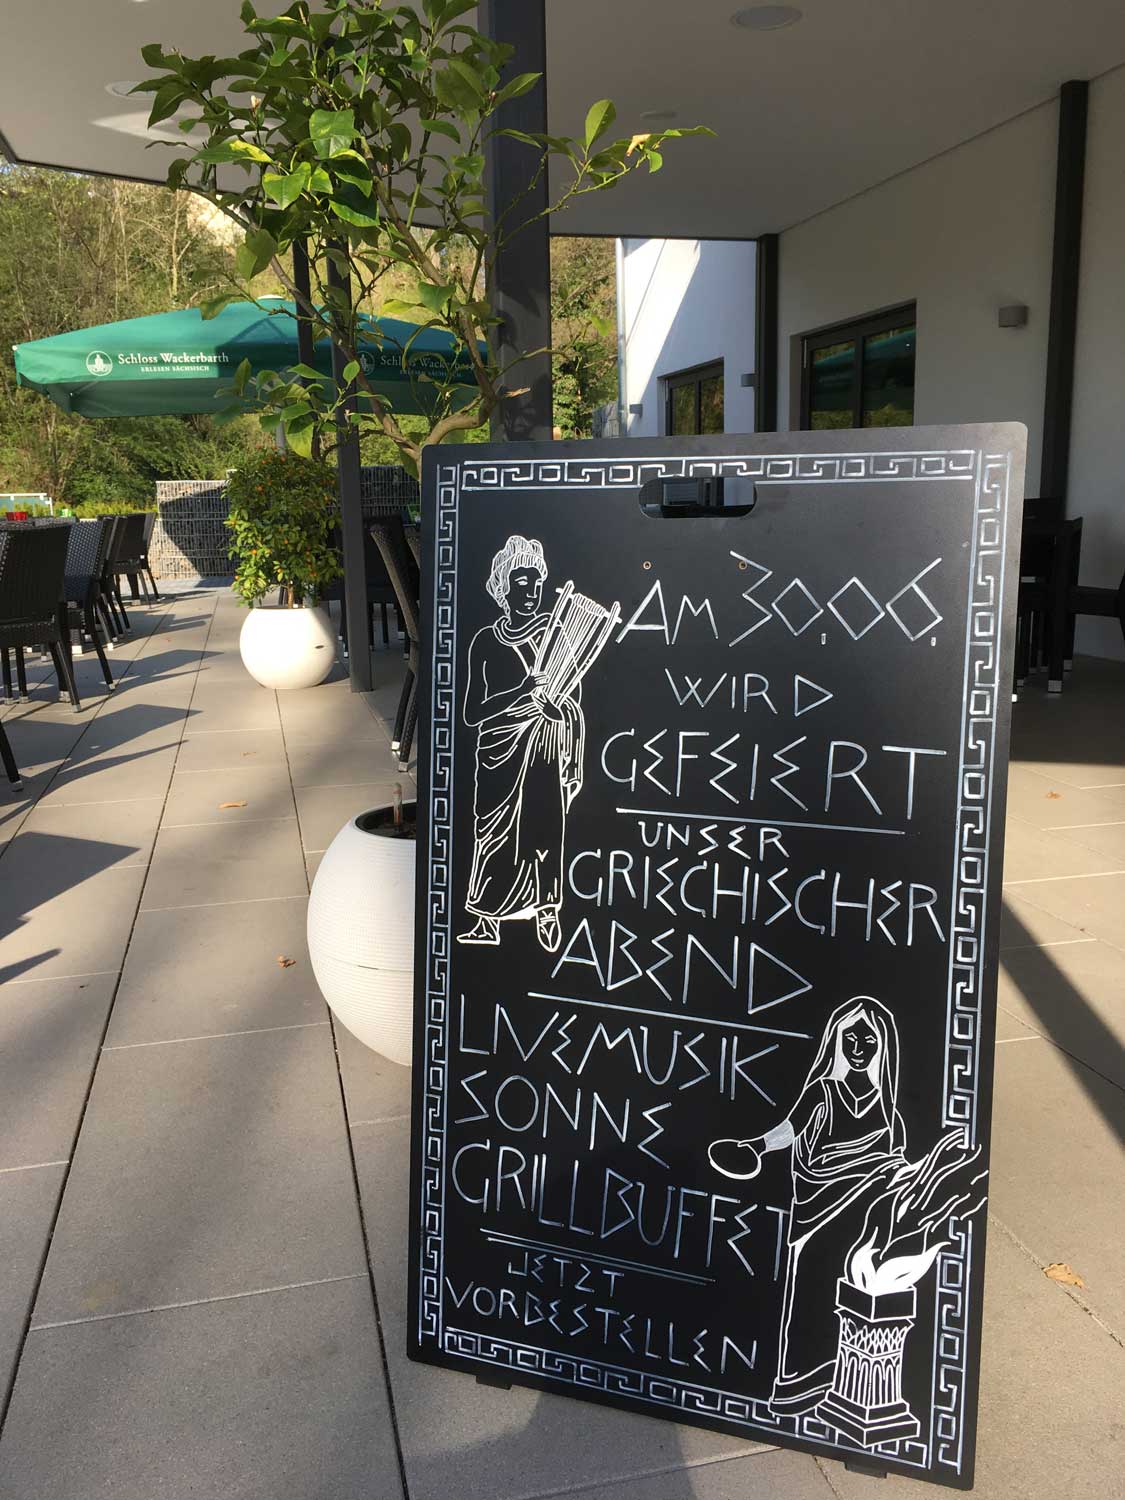 Schloss Wackerbarth
ERLESEN SÄCHSISCH
Schloss Wackerbarth
AM 30.06.
WIRD
GEFEIERT
UNSER
GRIECHISCHER
ABEND
LIVEMUSIK
SONNE
GRILLBUFFET
JETZT
VORBESTELLEN